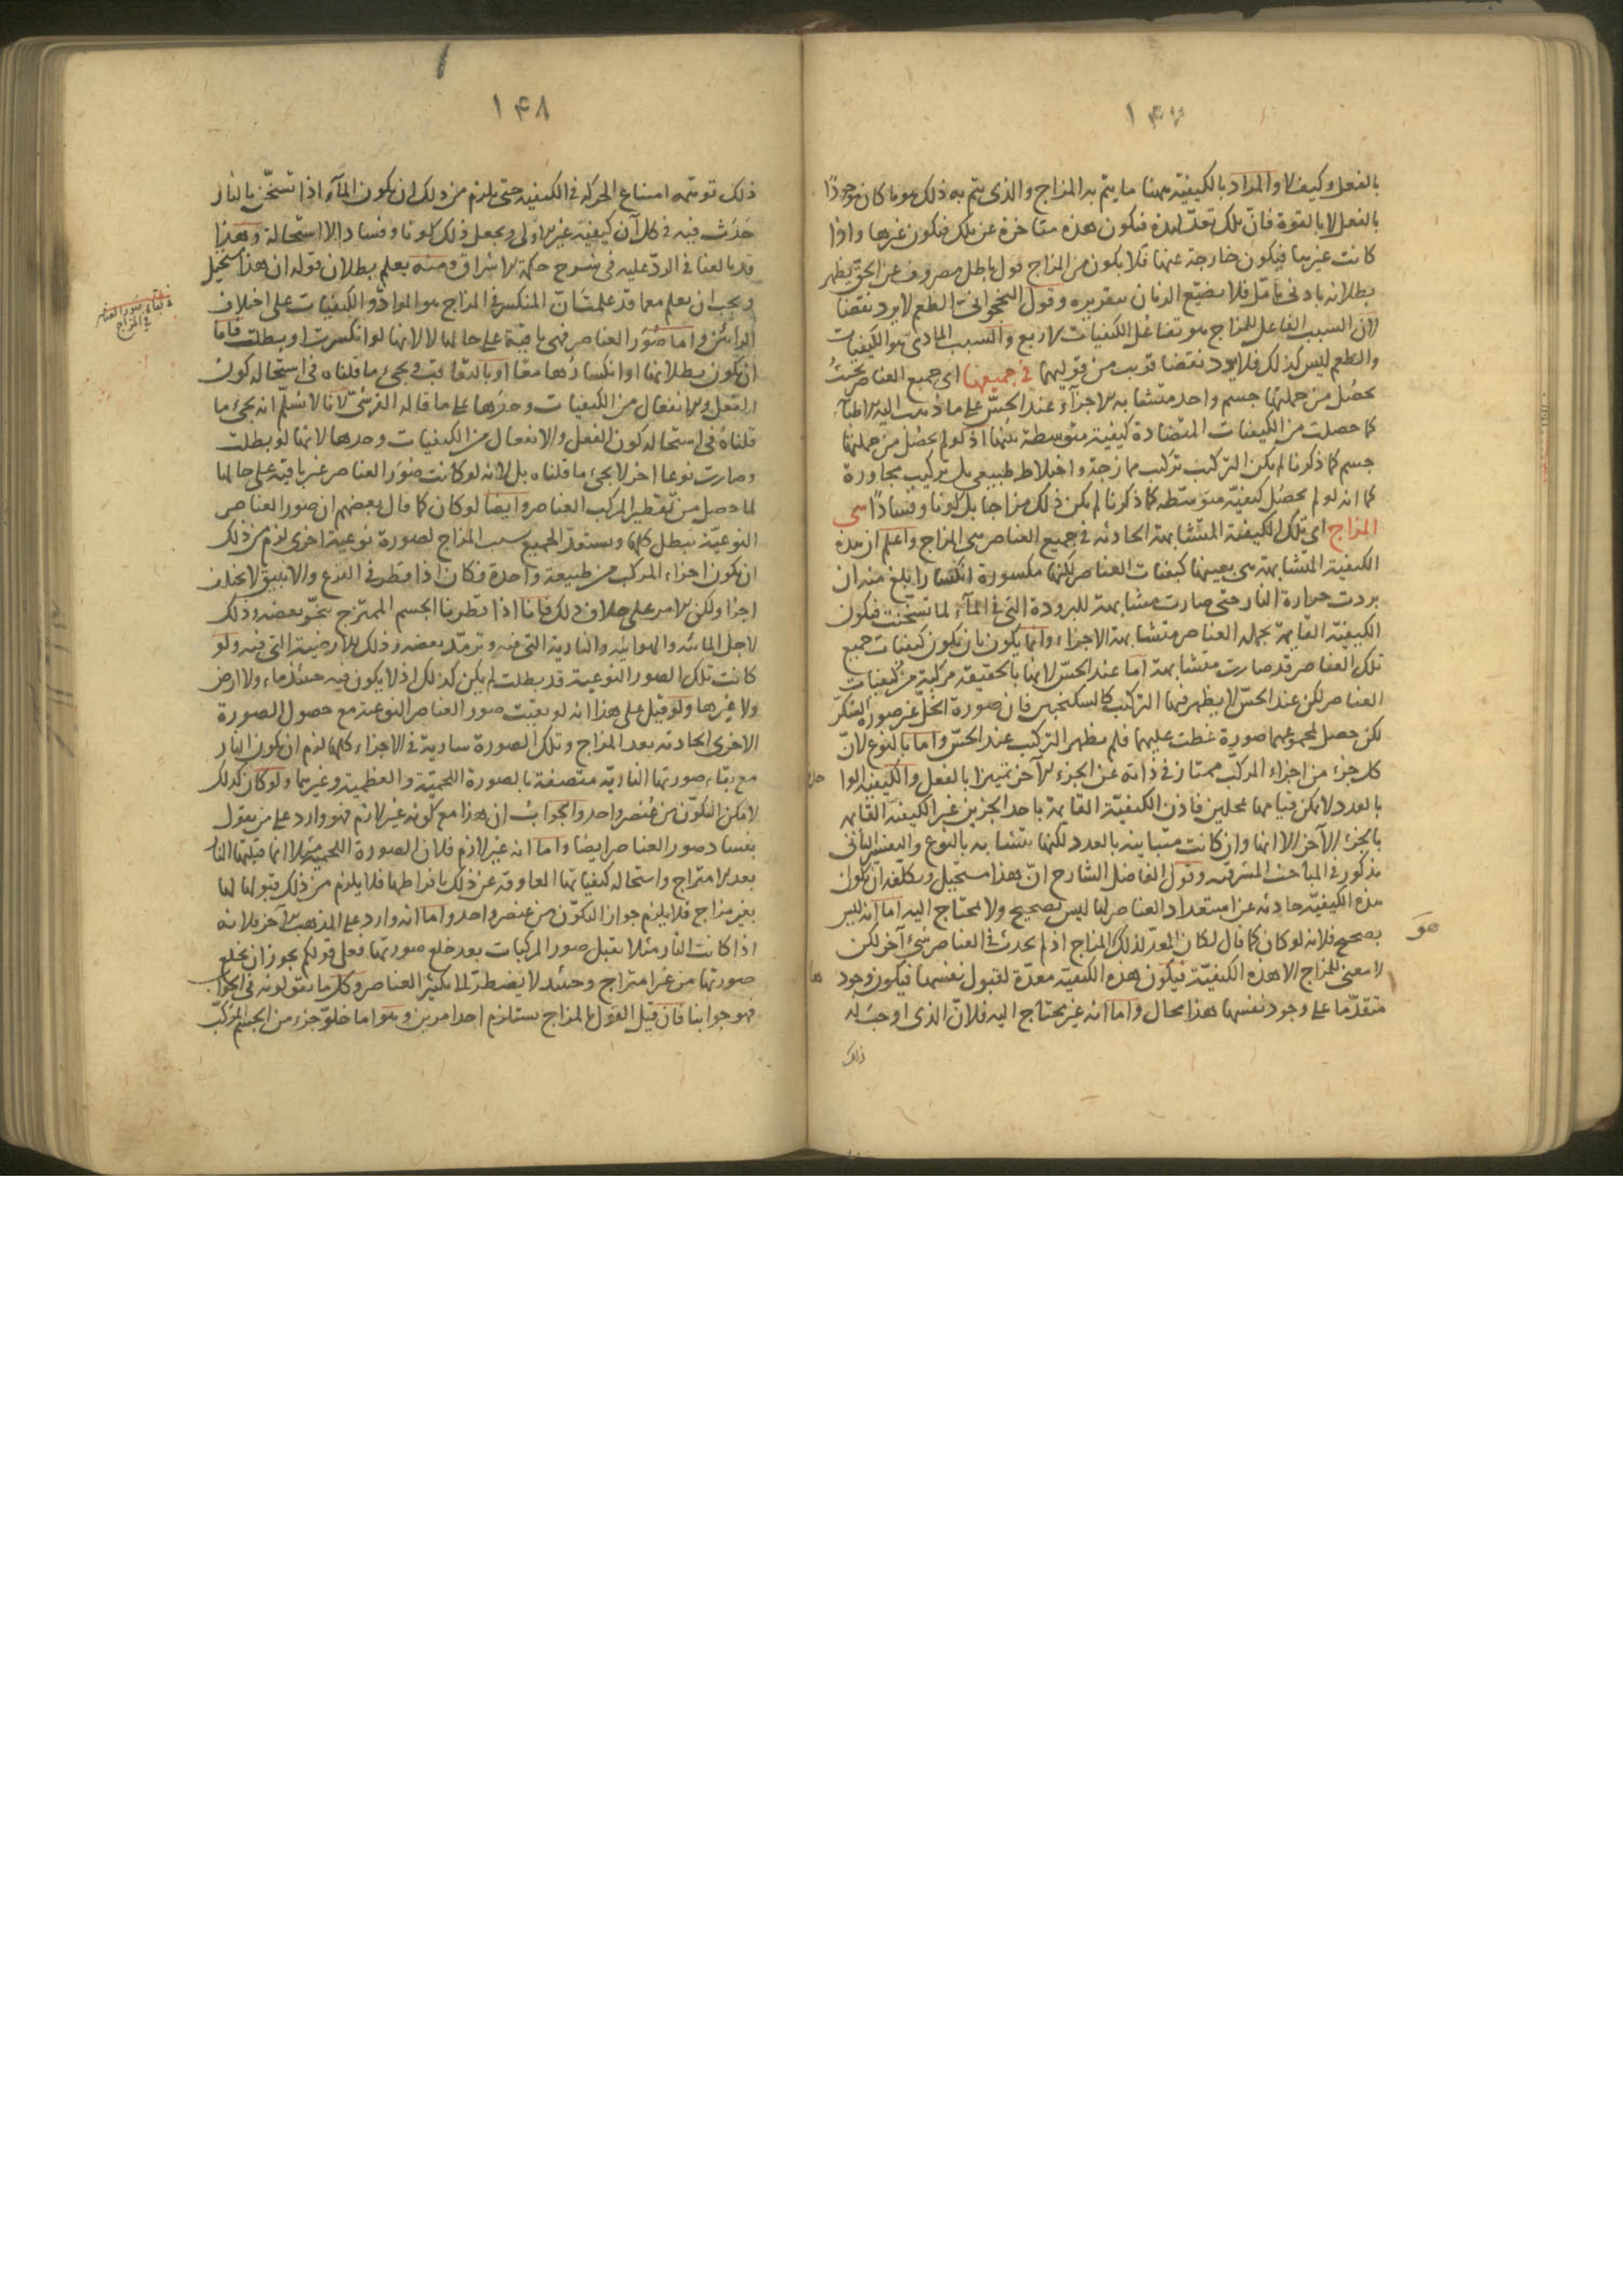 بالفعل وكيف لا والمراد بالكيفية ههنا ما يتم به المزاج والذى يتم به ذلك هو ما كان موجودًا
بالفعل لا بالقوة فانّ تلك تعدّ لهذه فتكون هذه متاخرة عن تلك فتكون غيرها واذا
كانت غيرها فيكون خارجة عنها فلا يكون من المزاج قول باطل مصروف عن الحقّ يظهر
بطلانه بادنى تامّل فلا نضيّع الزمان بتقريره وقول النخجوانىّ الطعم لا يرد نقضا
لانّ السبب الفاعل للمزاج هو تفاعل الكيفيات الاربع والسبب المادىّ هو الكيفيات
والطعم ليس كذلك فلا يرد نقضا قريب من قوليهما في جميعها اى جميع العناصر بحيث
يحصُل من جملتها جسم واحد متشابه الاجزآء عند الحسّ على ما ذهب اليه الاطبآء
كما حصلت من الكيفيات المتضادة كيفية متوسطة بينها اذ لو لم يحصُل من جملتها
جسم كما ذكرنا لم يكن التركيب تركيب ممازجة واختلاط طبيعي بل تركيب مجاورة
كما انه لو لم يحصُل كيفيّة متوسّطة كما ذكرنا لم يكن ذلك مزاجا بل كونا وفسادًا سمى
المزاج اى تلك الكيفية المتشابهة الحادثة في جميع العناصر سمى المزاج واعلم ان هذه
الكيفية المتشابهة هى بعينها كيفيات العناصر لكنها مكسورة انكسارا بلغ منه ان
بردت حرارة النار حتى صارت مشابهة للبرودة التى في المآء لما تسخّنت فيكون
الكيفيّة القايمة بجملة العناصر متشابهة الاجزاء وانما يكون بان يكون كيفيات جميع
تلك العناصر قد صارت متشابهة اما عند الحسّ لانها بالحقيقة مركبة من كيفيات
العناصر لكن عند الحسّ لا يظهر فيها التركيب كالسكنجبين فان صورة الخلّ غير صورة السكّر
لكن حصل لمجموعهما صورة غطت عليهما فلم يظهر التركيب عند الحسّ واما بالنوع لانّ
كل جزء من اجزاء المركّب ممتاز في ذاته عن الجزء الآخر تميزا بالفعل والكيفية الواحدة
بالعدد لا يمكن قيامها بمحلين فاذن الكيفيّة القايمة باحد الجزئين غير الكيفية القايمة
بالجزء الآخر الا انها وان كانت متباينة بالعدد لكنها متشابهة بالنوع والتفسير الثانى
مذكور في المباحث المشرقية وقول الفاضل الشارح انّ هذا مستحيل وتكلّفه ان يكون
هذه الكيفيّة حادثة عن استعداد العناصر لها ليس بصحيح ولا محتاج اليه اما انه ليس
هو
بصحيح فلانه لو كان كما قال لكان المعدّ لذلك المزاج اذ لم يحدث في العناصر شىء آخر لكن
لا معنى للمزاج الا هذه الكيفيّة فيكون هذه الكيفية معدّة لقبول نفسها فيكون وجودها
متقدّما على وجود نفسها هذا محال واما انه غير محتاج اليه فلانّ الذى اوجب له
ذلك
١٤٨
ذلك توهّمه امتناع الحركة في الكيفية حتى يلزم من ذلك ان يكون المآء اذا تسخّن بالنار
حدَث فيه في كل آن كيفيّة غير الاولى ويجعل ذلك كونا وفسادا لا استحالة وهذا
قد بالغنا في الردّ عليه في شرح حكمة الاشراق ومنه يعلم بطلان قوله ان هذا مستحيل
ويجب ان يعلم مما قد علمت انّ المنكسر في المزاج هو الموادّ او الكيفيات على اختلاف
الرائين واما صُوَر العناصر فهى باقية على حالها لا لانها لو انكسرت او بطلت فاما
ان يكون بطلانها او انكسارها معًا او بالتعاقب ويجىء ما قلناه في استحالة كون
الفعل والانفعال من الكيفيات وحدها على ما قاله القرشىّ لانا لا نسلّم انه يجىء ما
قلناه في استحالة كون الفعل والانفعال من الكيفيات وحدها لانها لو بطلت
وصارت نوعا اخر لا يجىء ما قلناه بل لانه لو كانت صُوَر العناصر غير باقية على حالها
لما حصل من تقطير المركب العناصر وايضا لو كان كما قال بعضهم ان صور العناصر
النوعيّة تبطل كلها ويستعدّ الجميع بسبب المزاج لصورة نوعية اخرى لزم من ذلك
ان يكون اجزاء المركب من طبيعة واحدة فكان اذا قطر في القرع والانبيق لا يختلف
اجزا ولكن الامر على خلاف ذلك فانا اذا قطرنا الجسم الممتزج تبخّر بعضه وذلك
لاجل المائية والهوائية والنارية التى فيه وترمّد بعضه وذلك للارضية التى فيه ولو
كانت تلك الصور النوعية قد بطلت لم يكن كذلك اذ لا يكون فيه حينئذ ماء ولا ارض
ولا غيرها ولو قيل على هذا انه لو بقيت صور العناصر النوعية مع حصول الصورة
الاخرى الحادثة بعد المزاج وتلك الصورة سارية في الاجزاء كلها لزم ان يكون النار
مع بقاء صورتها الناريّة متصفة بالصورة اللحميّة والعظمية وغيرهما ولو كان كذلك
لامكن التكوّن من عُنصر واحد والجواب ان هذا مع كونه غير لازم فهو وارد على من يقول
بفساد صور العناصر ايضا واما انه غير لازم فلان الصورة اللحمية مثلا انما قبلتها النار
بعد الامتراج واستحالة كيفياتها العاوقة عن ذلك بافراطها فلا يلزم من ذلك قبولها لها
بغير مزاج فلا يلزم جواز التكوّن من عنصر واحد واما انه وارد على المذهب الآخر فلانه
اذا كانت النار مثلا تقبل صور المركبات بعد خلع صورتها فعلى قولكم يجوز ان يخلع
صورتها من غير امتراج وحينئذ لا يضطرّ لما تكثير العناصر وكل ما تقولونه في الجواب
فهو جوابنا فان قيل القول بالمزاج يستلزم احد امرين وهو اما خلوّ جزء من الجسم المركّب